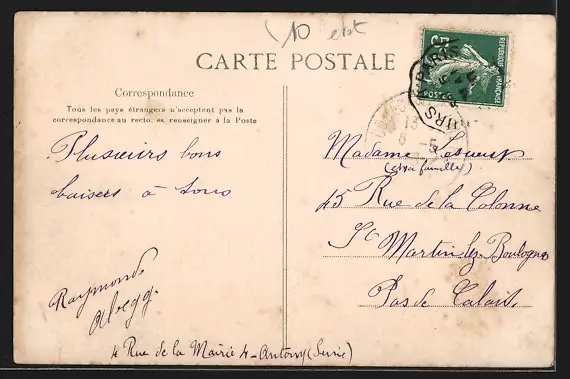 10 etat
CARTE POSTALE
Correspondance
Tous les pays étrangers n'acceptent pas la
correspondance au recto, se renseigner à la Poste
Plusieurs bons
baisers à tous
Raymonde
Abegg.
4 Rue de la Mairie 4 - Antony (Seine)
5c
POSTES
FRANÇAISE
PARIS
13
6 - 5
Madame Leseur
(et sa famille)
45 Rue de la Colonne
St Martin-les-Boulogne
Pas de Calais.